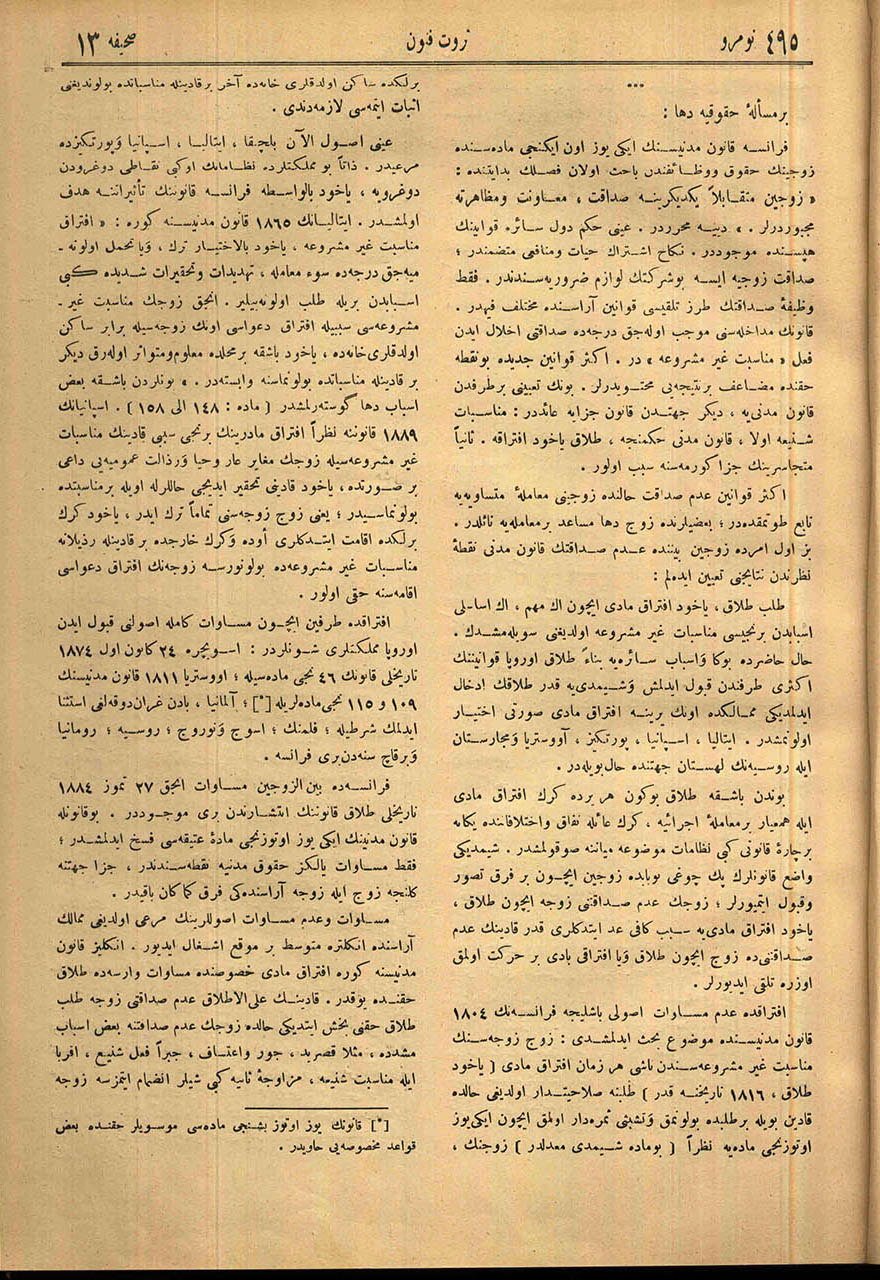 نومرو ٤٩٥
ثروت فنون
صحیفه ١٣
***
بر مسألۀ حقوقیه دها :
فرانسه قانون مدنیسنك ایکی یوز اون ایکنجی ماده‌سنده
زوجینك حقوق ووظائفندن باحث اولان فصلك بدایتنده :
« زوجین متقابلاً یکدیکرینه صداقت ، معاونت ومظاهرته
مجبوردرلر . » دینه محرردر . عینی حکم دول سائره قوانینك
هپسنده موجوددر . نکاح اشتراك حیات ومنافعی متضمندر ؛
صداقت زوجیه ایسه بوشرکتك لوازم ضروریه‌سندندر . فقط
وظیفۀ صداقتك طرز تلقیسی قوانین آراسنده مختلف فیهدر .
قانونك مداخله‌سنی موجب اوله‌جق درجه‌ده صداقتی اخلال ایدن
فعل « مناسبت غیر مشروعه » در . اکثر قوانین جدیده بونقطه
حقنده مضاعف برنتیجه‌یی محتویدرلر . بونك تعیینی برطرفدن
قانون مدنی‌یه ، دیکر جهتدن قانون جزایه عائددر : مناسبات
شنیعه اولا ، قانون مدنی حکمنجه ، طلاق یاخود افتراقه . ثانیاً
متجاسرینك جزا کورمه‌سنه سبب اولور .
اکثر قوانین عدم صداقت حالنده زوجینی معاملۀ متساویه‌یه
تابع طوتمقده‌در ؛ بعضیلرنده زوج دها مساعد برمعامله‌یه نائلدر .
بز اول امرده زوجین بیننده عدم صداقتك قانون مدنی نقطۀ
نظرندن نتایجنی تعیین ایده‌لم :
طلب طلاق ، یاخود افتراق مادی ایچون اك مهم ، اك اساسلی
اسبابدن برنجیسی مناسبات غیر مشروعه اولدیغنی سویله‌مشدك .
حال حاضرده بوکا وَاسباب سائره‌یه بناءً طلاق اوروپا قوانیننك
اکثری طرفندن قبول ایدلمش وَشیمدی‌یه قدر طلاقك ادخال
ایدلمدیکی ممالکده اونك یرینه افتراق مادی صورتی اختیار
اولونمشدر . ایتالیا ، اسپانیا ، پورتکیز ، آووستریا وَمجارستان
ایله روسیه‌نك لهستان جهتنده حال بویله‌در .
بوندن باشقه طلاق بوکون هر یرده کرك افتراق مادی
ایله همعیار برمعاملۀ اجرائیه ، کرك عائله نفاق واختلافاتنده یکانه
برچارۀ قانونی کبی نظامات موضوعه میاننه صوقولمشدر . شیمدیکی
واضع قانونلرك پك چوغی بوبابده زوجین ایچون بر فرق تصور
وقبول ایتمیورلر ؛ زوجك عدم صداقتنی زوجه ایچون طلاق ،
یاخود افتراق مادی‌یه سبب کافی عد ایتدکلری قدر قادینك عدم
صداقتنی‌ده زوج ایچون طلاق وَیا افتراقی بادی بر حرکت اولمق
اوزره تلقی ایدیورلر .
افتراقده عدم مساوات اصولی باشلیجه فرانسه‌نك ١٨٠٤
قانون مدنیسنده موضوع بحث ایدلمشدی : زوج زوجه‌سنك
مناسبت غیر مشروعه‌سندن ناشی هر زمان افتراق مادی ( یاخود
طلاق ، ١٨١٦ تاریخنه قدر ) طلبنه صلاحیتدار اولدیغی حالده
قادین بویله برطلبده بولونمق وَتشبثی ثمره‌دار اولمق ایچون ایکی‌یوز
اوتوزنجی ماده‌یه نظراً ( بوماده شیمدی معدلدر ) زوجنك ،
برلکده ساکن اولدقلری خانه‌ده آخر برقادینله مناسباتده بولوندیغنی
اثبات ایتمه‌سی لازمه‌دندی .
عینی اصول الآن بلچیقا ، ایتالیا ، اسپانیا وَپورتکیزده
مرعیدر . ذاتاً بو مملکتلرده نظاماتك اوکبی نقاطی دوغرودن
دوغرویه ، یاخود بالواسطه فرانسه قانوننك تأثیراتنه هدف
اولمشدر . ایتالیانك ١٨٦٥ قانون مدنیسنه کوره : « افتراق
مناسبت غیر مشروعه ، یاخود بالاختیار ترك ، وَیا تحمل اولونه -
میه‌جق درجه‌ده سوء معامله ، تهدیدات وتحقیرات شدیده کبی
اسبابدن بریله طلب اولونه‌بیلیر . انجق زوجك مناسبت غیر -
مشروعه‌سی سببیله افتراق دعواسی اونك زوجه‌سیله برابر ساکن
اولدقلری خانه‌ده ، یاخود باشقه برمحلده معلوم‌ومتواتر اوله‌رق دیکر
بر قادینله مناسباتده بولونماسنه وابسته‌در . » بونلردن باشقه بعض
اسباب دها گوسته‌رلمشدر ( ماده : ١٤٨ الی ١٥٨ ) . اسپانیانك
١٨٨٩ قانوننه نظراً افتراق مادرینك برنجی سببی قادینك مناسبات
غیر مشروعه‌سیله زوجك مغایر عار وحیا وَرذالت عمومیه‌یی داعی
بر صورتده ، یاخود قادینی تحقیر ایدیجی حاللرله اویله برمناسبتده
بولونماسیدر ؛ یعنی زوج زوجه‌سنی تماماً ترك ایدر ، یاخود کرك
برلکده اقامت ایتدکلری أوده وَکرك خارجده برقادینله رذیلانه
مناسبات غیر مشروعه‌ده بولونورسه زوجه‌نك افتراق دعواسی
اقامه‌سنه حقی اولور .
افتراقده طرفین ایچون مساوات کامله اصولنی قبول ایدن
اوروپا مملکتلری شونلردر : اسویچره ٢٤ کانون اول ١٨٧٤
تاریخلی قانونك ٤٦ نجی ماده‌سیله ؛ اووستریا ١٨١١ قانون مدنیسنك
١٠٩ و ١١٥ نجی ماده‌لریله [*] ؛ آلمانیا ، بادن غران‌دوقه‌لغی استثنا
ایدلمك شرطیله ؛ فلمنك ؛ اسوج وَنوروج ؛ روسیه ؛ رومانیا
وَبرقاچ سنه‌دن‌بری فرانسه .
فرانسه‌ده بین‌الزوجین مساوات انجق ٢٧ تموز ١٨٨٤
تاریخلی طلاق قانوننك انتشارندن بری موجوددر . بوقانونله
قانون مدنینك ایکی یوز اوتوزنجی مادۀ عتیقه‌سی فسخ ایدلمشدر ؛
فقط مساوات یالکز حقوق مدنیه نقطه‌سندندر ، جزا جهتنه
کلنجه زوج ایله زوجه آراسنده‌کی فرق کماکان باقیدر .
مساوات وعدم مساوات اصوللرینك مرعی اولدیغی ممالك
آراسنده انکلتره متوسط بر موقع اشغال ایدیور . انکلیز قانون
مدنیسنه کوره افتراق مادی خصوصنده مساوات وارسه‌ده طلاق
حقنده یوقدر . قادینك علی‌الاطلاق عدم صداقتی زوجه طلب
طلاق حقنی بخش ایتدیکی حالده زوجك عدم صداقتنه بعض اسباب
مشدده ، مثلا قصربد ، جور واعتساف ، جبراً فعل شنیع ، اقربا
ایله مناسبت شنیعه ، مزاوجۀ ثانیه کبی شیلر انضمام ایتمزسه زوجه
[*] قانونك یوز اوتوز بشنجی ماده‌سی موسویلر حقنده بعض
قواعد مخصوصه‌یی حاویدر .